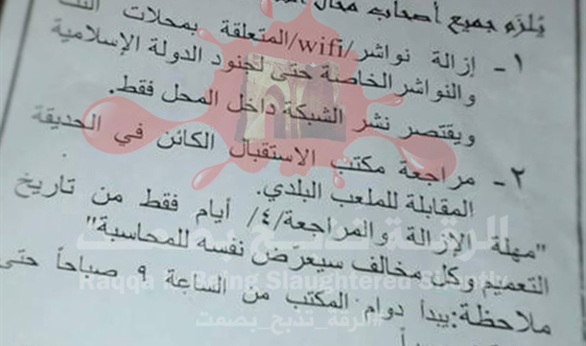 يُلزَم جميع أصحاب محال
١- إزالة نواشر/wifi/المتعلقة بمحلات النت
والنواشر الخاصة حتى لجنود الدولة الإسلامية
ويقتصر نشر الشبكة داخل المحل فقط.
٢- مراجعة مكتب الاستقبال الكائن في الحديقة
المقابلة للملعب البلدي.
"مهلة الإزالة والمراجعة/٤/ أيام فقط من تاريخ
التعميم وكل مخالف سيعرّض نفسه للمحاسبة"
ملاحظة:يبدأ دوام المكتب من الساعة ٩ صباحاً حتى
الرقة تذبح بصمت
Raqqa is Being Slaughtered Silently
#الرقة_تذبح_بصمت